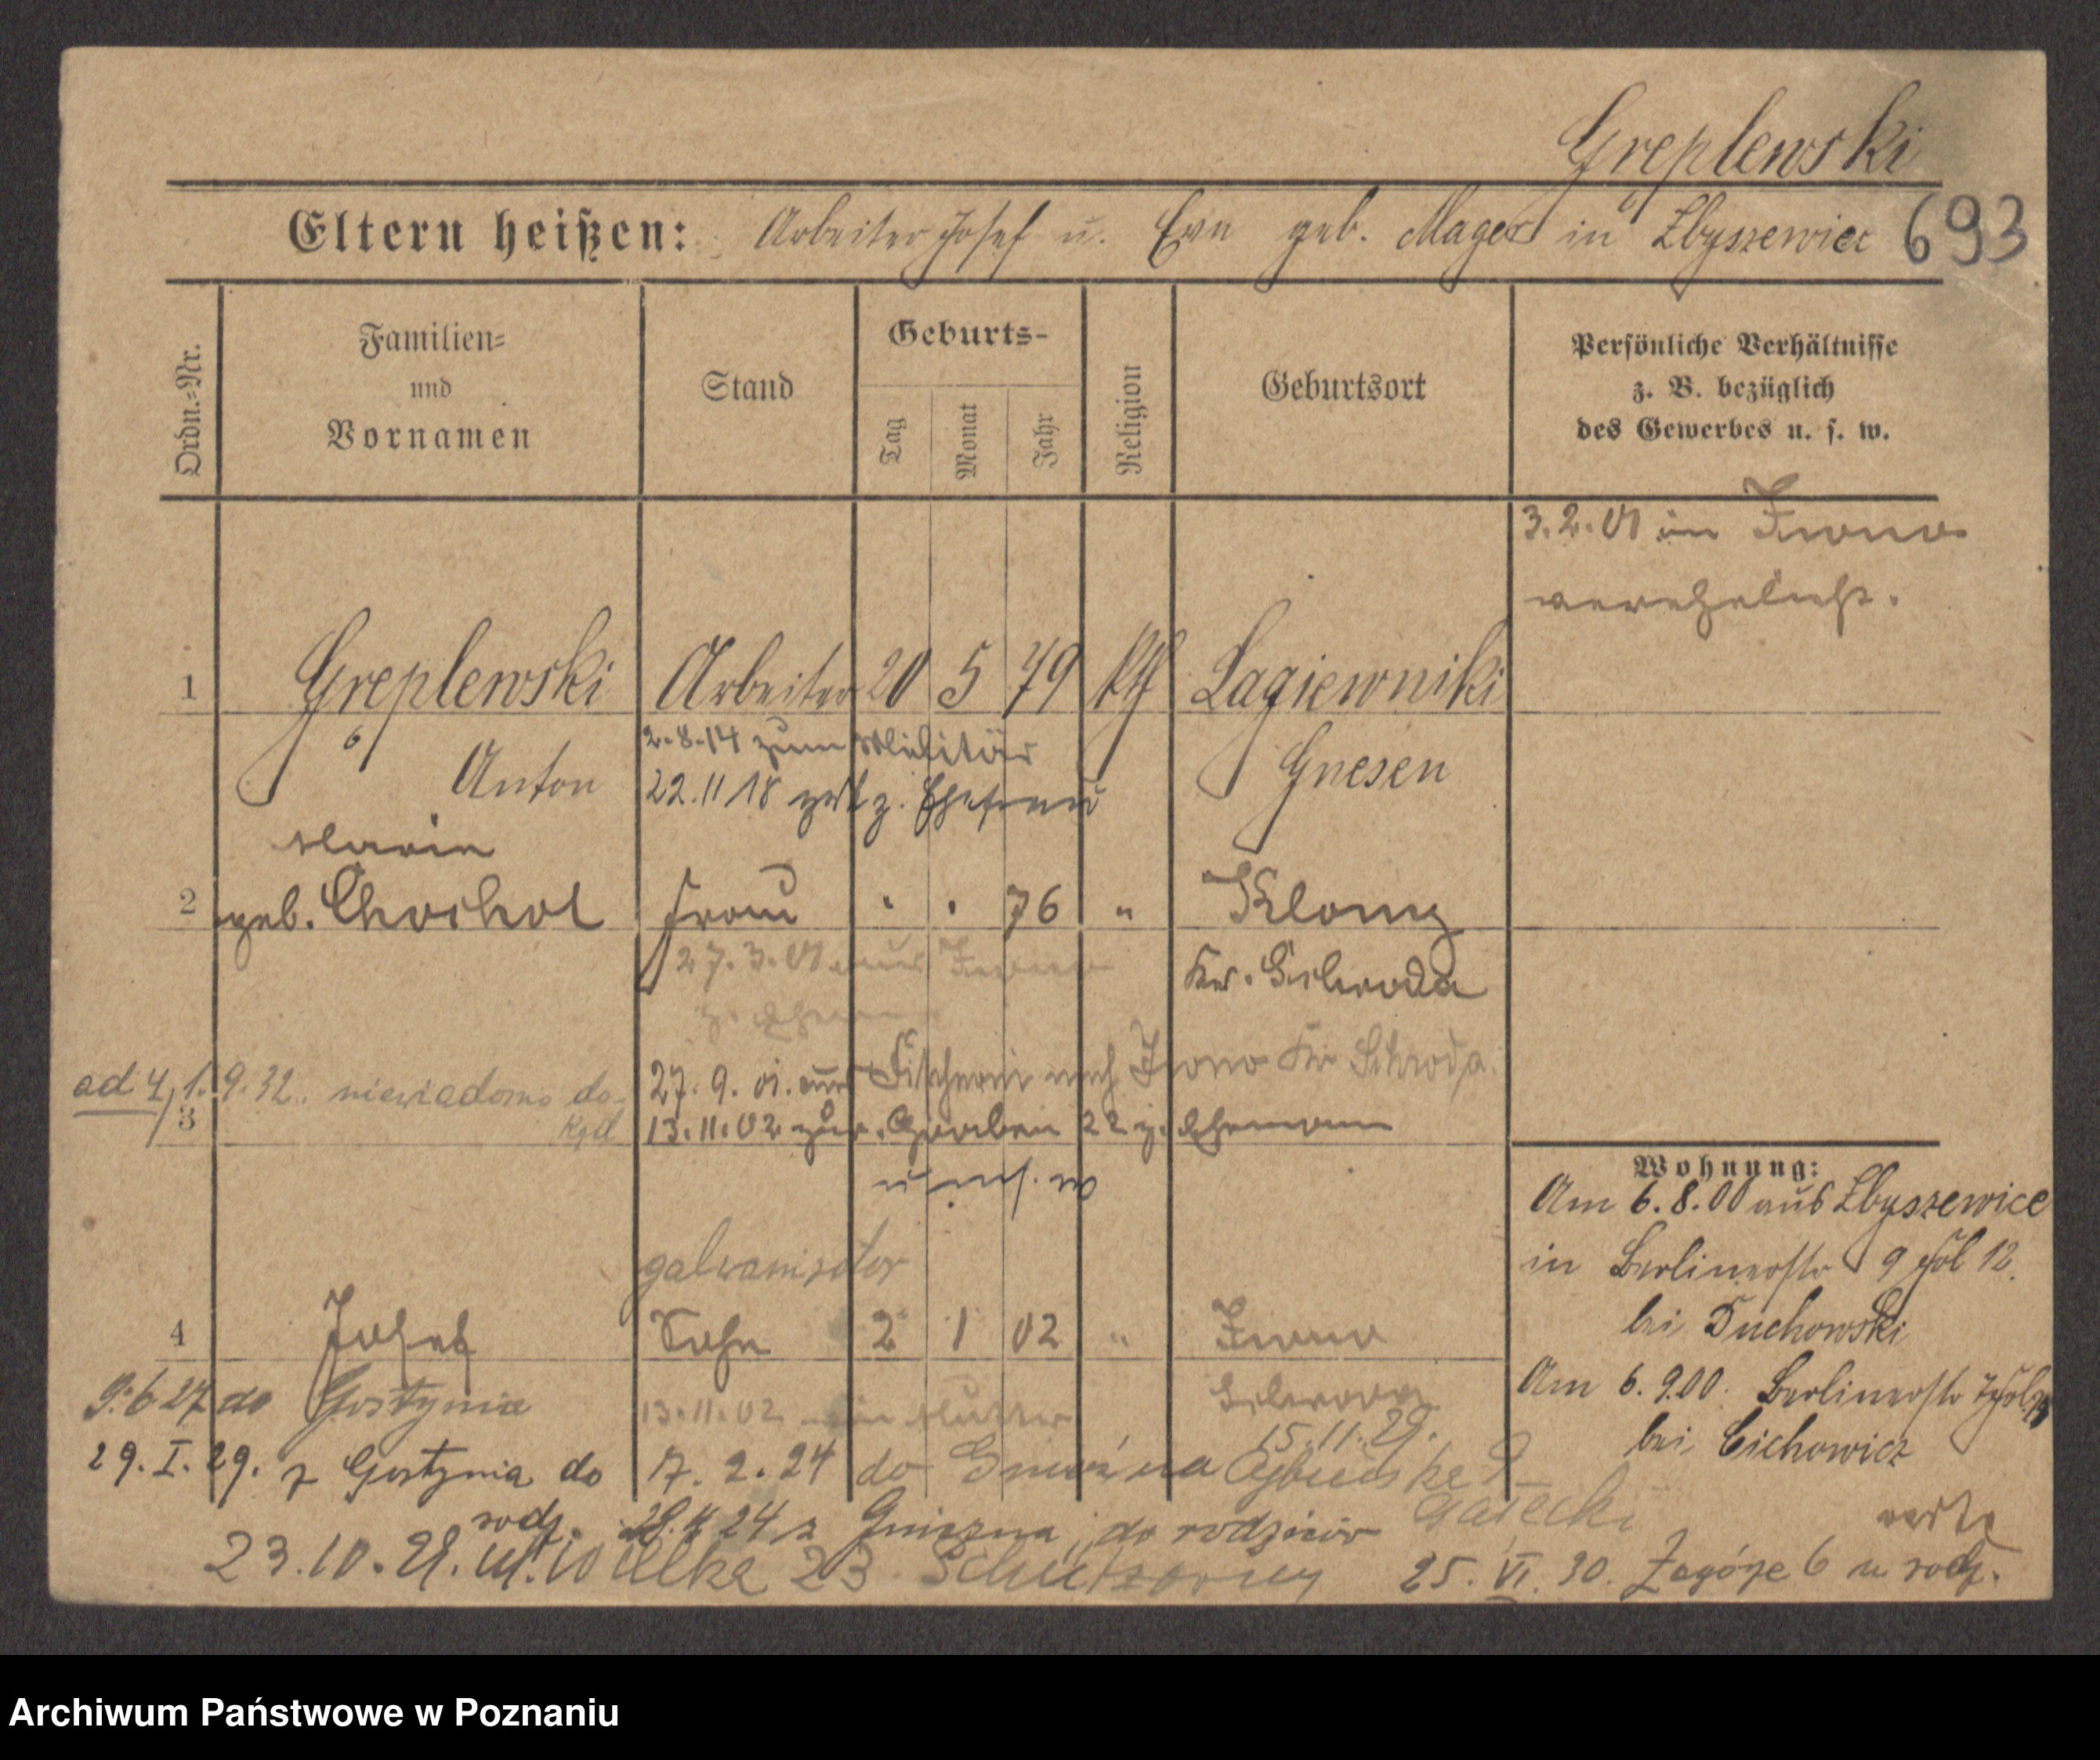 Greplewski
Eltern heißen: Arbeiter Josef u. Eva geb. Mager in Zbyszewice 693
Ordn.=Nr.
Familien= und Vornamen
Stand
Geburts-
Tag
Monat
Jahr
Religion
Geburtsort
Persönliche Verhältnisse
z. B. bezüglich
des Gewerbes u. s. w.
3.2.01 in Iwno
verehelicht.
1 Greplewski Arbeiter 20 5 79 kth Lagiewniki
Anton
2.8.14 zum Militär
Gnesen
22.11 18 zrk z. Ehefrau
Maria
2 geb. Chochol Frau " " 76 "
27.3.01 aus Iwno
Kr. Schroda
z. Ehemann
ad 4, 1.9.32. niewiadomo do-
kąd
27.9.01. aus Fischerei nach Iwno Kr Schroda
3
13.11.02 zur. Gerberd. 22 z. Ehemann
Wohnung:
Am 6.8.00 aus Zbyszewice
in Berlinerstr 9 Hof 12.
bei Duchowski
Am 6.9.00. Berlinerstr
bei Cichowicz
galwanizator
4 Josef Sohn 2 1 02 " Iwno
Schroda
9.6 27 do Gostynia
13.11.02 Mutter
15.11.29.
29.I.29. z Gostynia do
rodz.
17.2.24 do Gniezna
24 z Gniezna, do rodziców
Gałecki
verte
23.10.28. ul. Wielka 23
25.VI.30. Zagórze 6 u rodz.
Archiwum Państwowe w Poznaniu